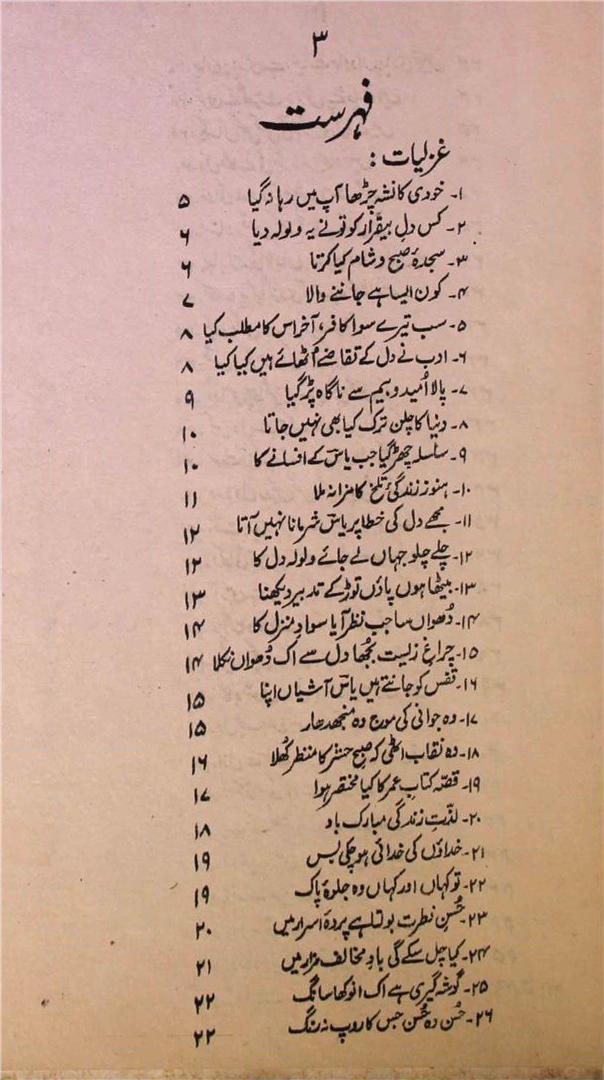 ۳
فہرست
غزلیات :
۱۔ خودی کا نشہ چڑھا آپ میں رہا نہ گیا ۵
۲۔ کس دلِ بیقرار کو تونے یہ ولولہ دیا ۶
۳۔ سجدۂ صبح و شام کیا کرتا ۶
۴۔ کون ایسا ہے جاننے والا ۷
۵۔ سب تیرے سوا کافر، آخر اس کا مطلب کیا ۸
۶۔ ادب نے دل کے تقاضے اُٹھائے ہیں کیا کیا ۸
۷۔ پالا اُمید و بیم سے ناگاہ پڑ گیا ۹
۸۔ دنیا کا چلن ترک کیا بھی نہیں جاتا ۱۰
۹۔ سلسلہ چھڑ گیا جب یاسؔ کے افسانے کا ۱۰
۱۰۔ ہنوز زندگیٔ تلخ کا مزا نہ ملا ۱۱
۱۱۔ مجھے دل کی خطا پر یاسؔ شرمانا نہیں آتا ۱۲
۱۲۔ چلے چلو جہاں لے جائے ولولہ دل کا ۱۲
۱۳۔ بیٹھا ہوں پاؤں توڑ کے تدبیر دیکھنا ۱۳
۱۴۔ دُھواں سا جب نظر آیا سوادِ منزل کا ۱۴
۱۵۔ چراغِ زیست بُجھا دل سے اک دُھواں نکلا ۱۴
۱۶۔ قفس کو جانتے ہیں یاسؔ آشیاں اپنا ۱۵
۱۷۔ وہ جوانی کی موج وہ منجھدھار ۱۵
۱۸۔ وہ نقاب اٹھی کہ صبحِ حشر کا منظر کُھلا ۱۶
۱۹۔ قصہ کتابِ عمر کا کیا مختصر ہوا ۱۷
۲۰۔ لذّتِ زندگی مبارک باد ۱۸
۲۱۔ خداؤں کی خدائی ہو چکی بس ۱۹
۲۲۔ تو کہاں اور کہاں وہ جلوۂ پاک ۱۹
۲۳۔ حُسنِ فطرت بولتا ہے پردۂ اسرار میں ۲۰
۲۴۔ کیا چل سکے گی بادِ مخالف مزار میں ۲۱
۲۵۔ گوشہ گیری ہے اک انوکھا سانگ ۲۲
۲۶۔ حُسن وہ حُسن جس کا روپ نہ رنگ ۲۲